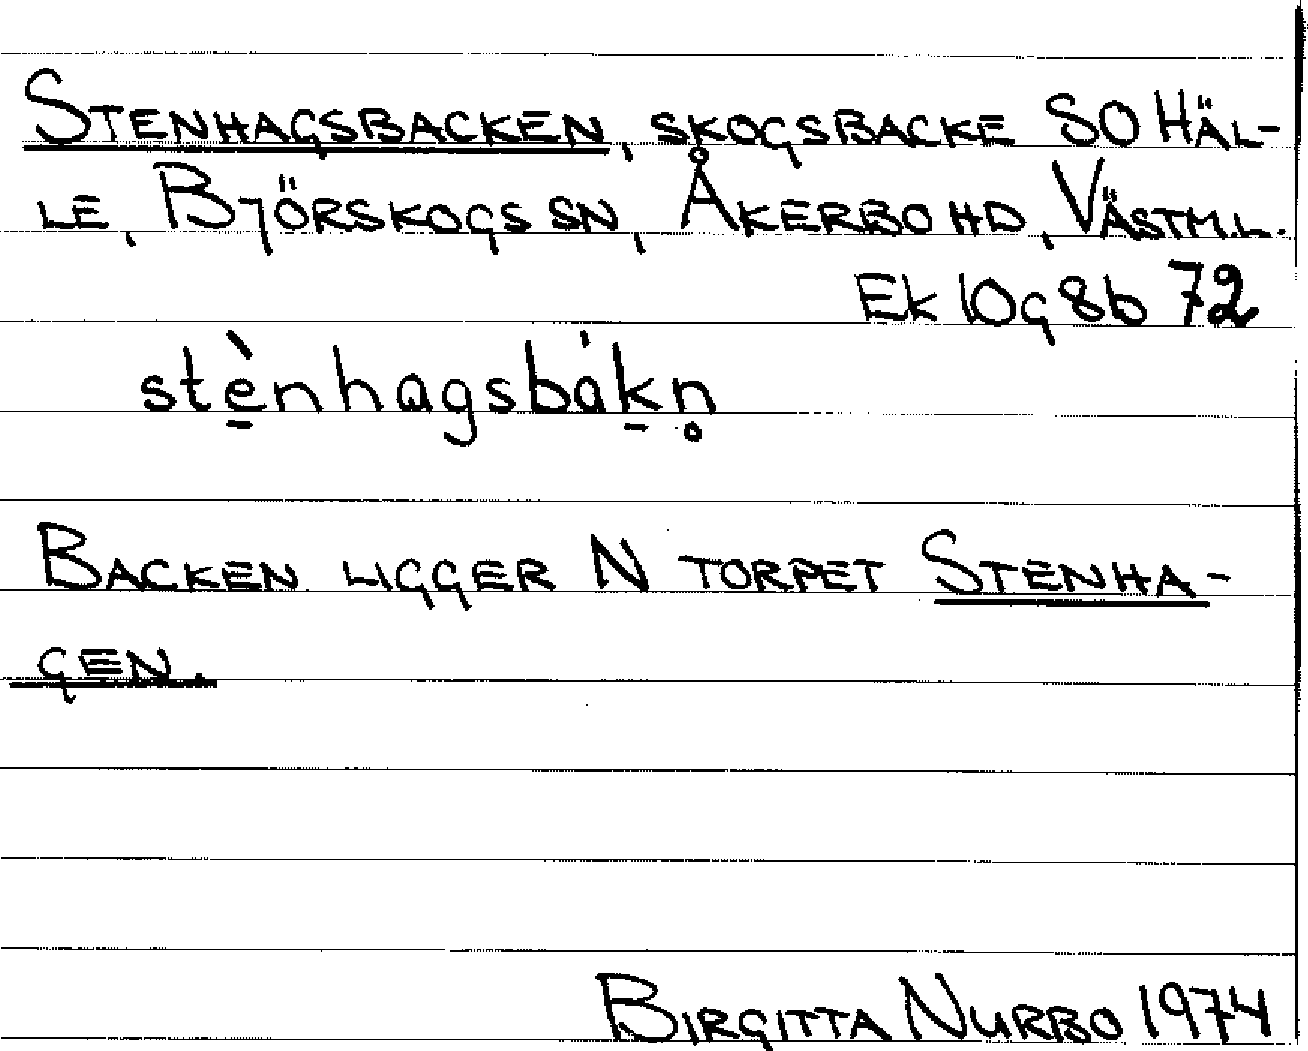 STENHAGSBACKEN, SKOGSBACKE SO HÄL-
LE, BJÖRSKOGS SN, ÅKERBO HD, VÄSTM.L.
EK 10g 8b 72
stè̠nhagsbák̠n̥
BACKEN LIGGER N TORPET STENHA-
GEN.
BIRGITTA NURBO 1974